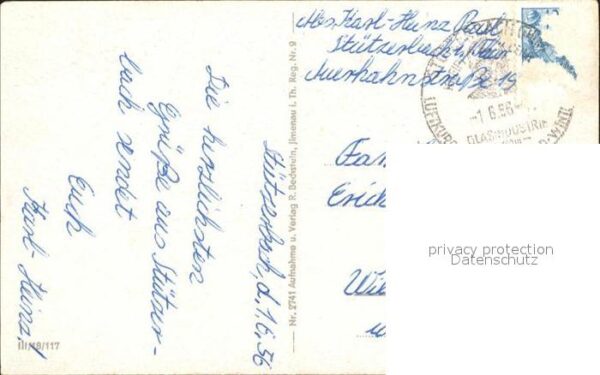 Abs. Karl-Heinz Paul
Stützerbach i. Thür
Auerhahnstraße 19
Stützerbach, d. 1.6.56
Die herzlichsten
Grüße aus Stützer-
bach sendet
Euch
Karl-Heinz!
Nr. 2741 Aufnahme u. Verlag R. Bechstein, Jlmenau i. Th. Reg. Nr. 9
III/18/117
-1.6.56-
GLASINDUSTRIE
LUFTKURORT
Fam
Erich
privacy protection
Datenschutz